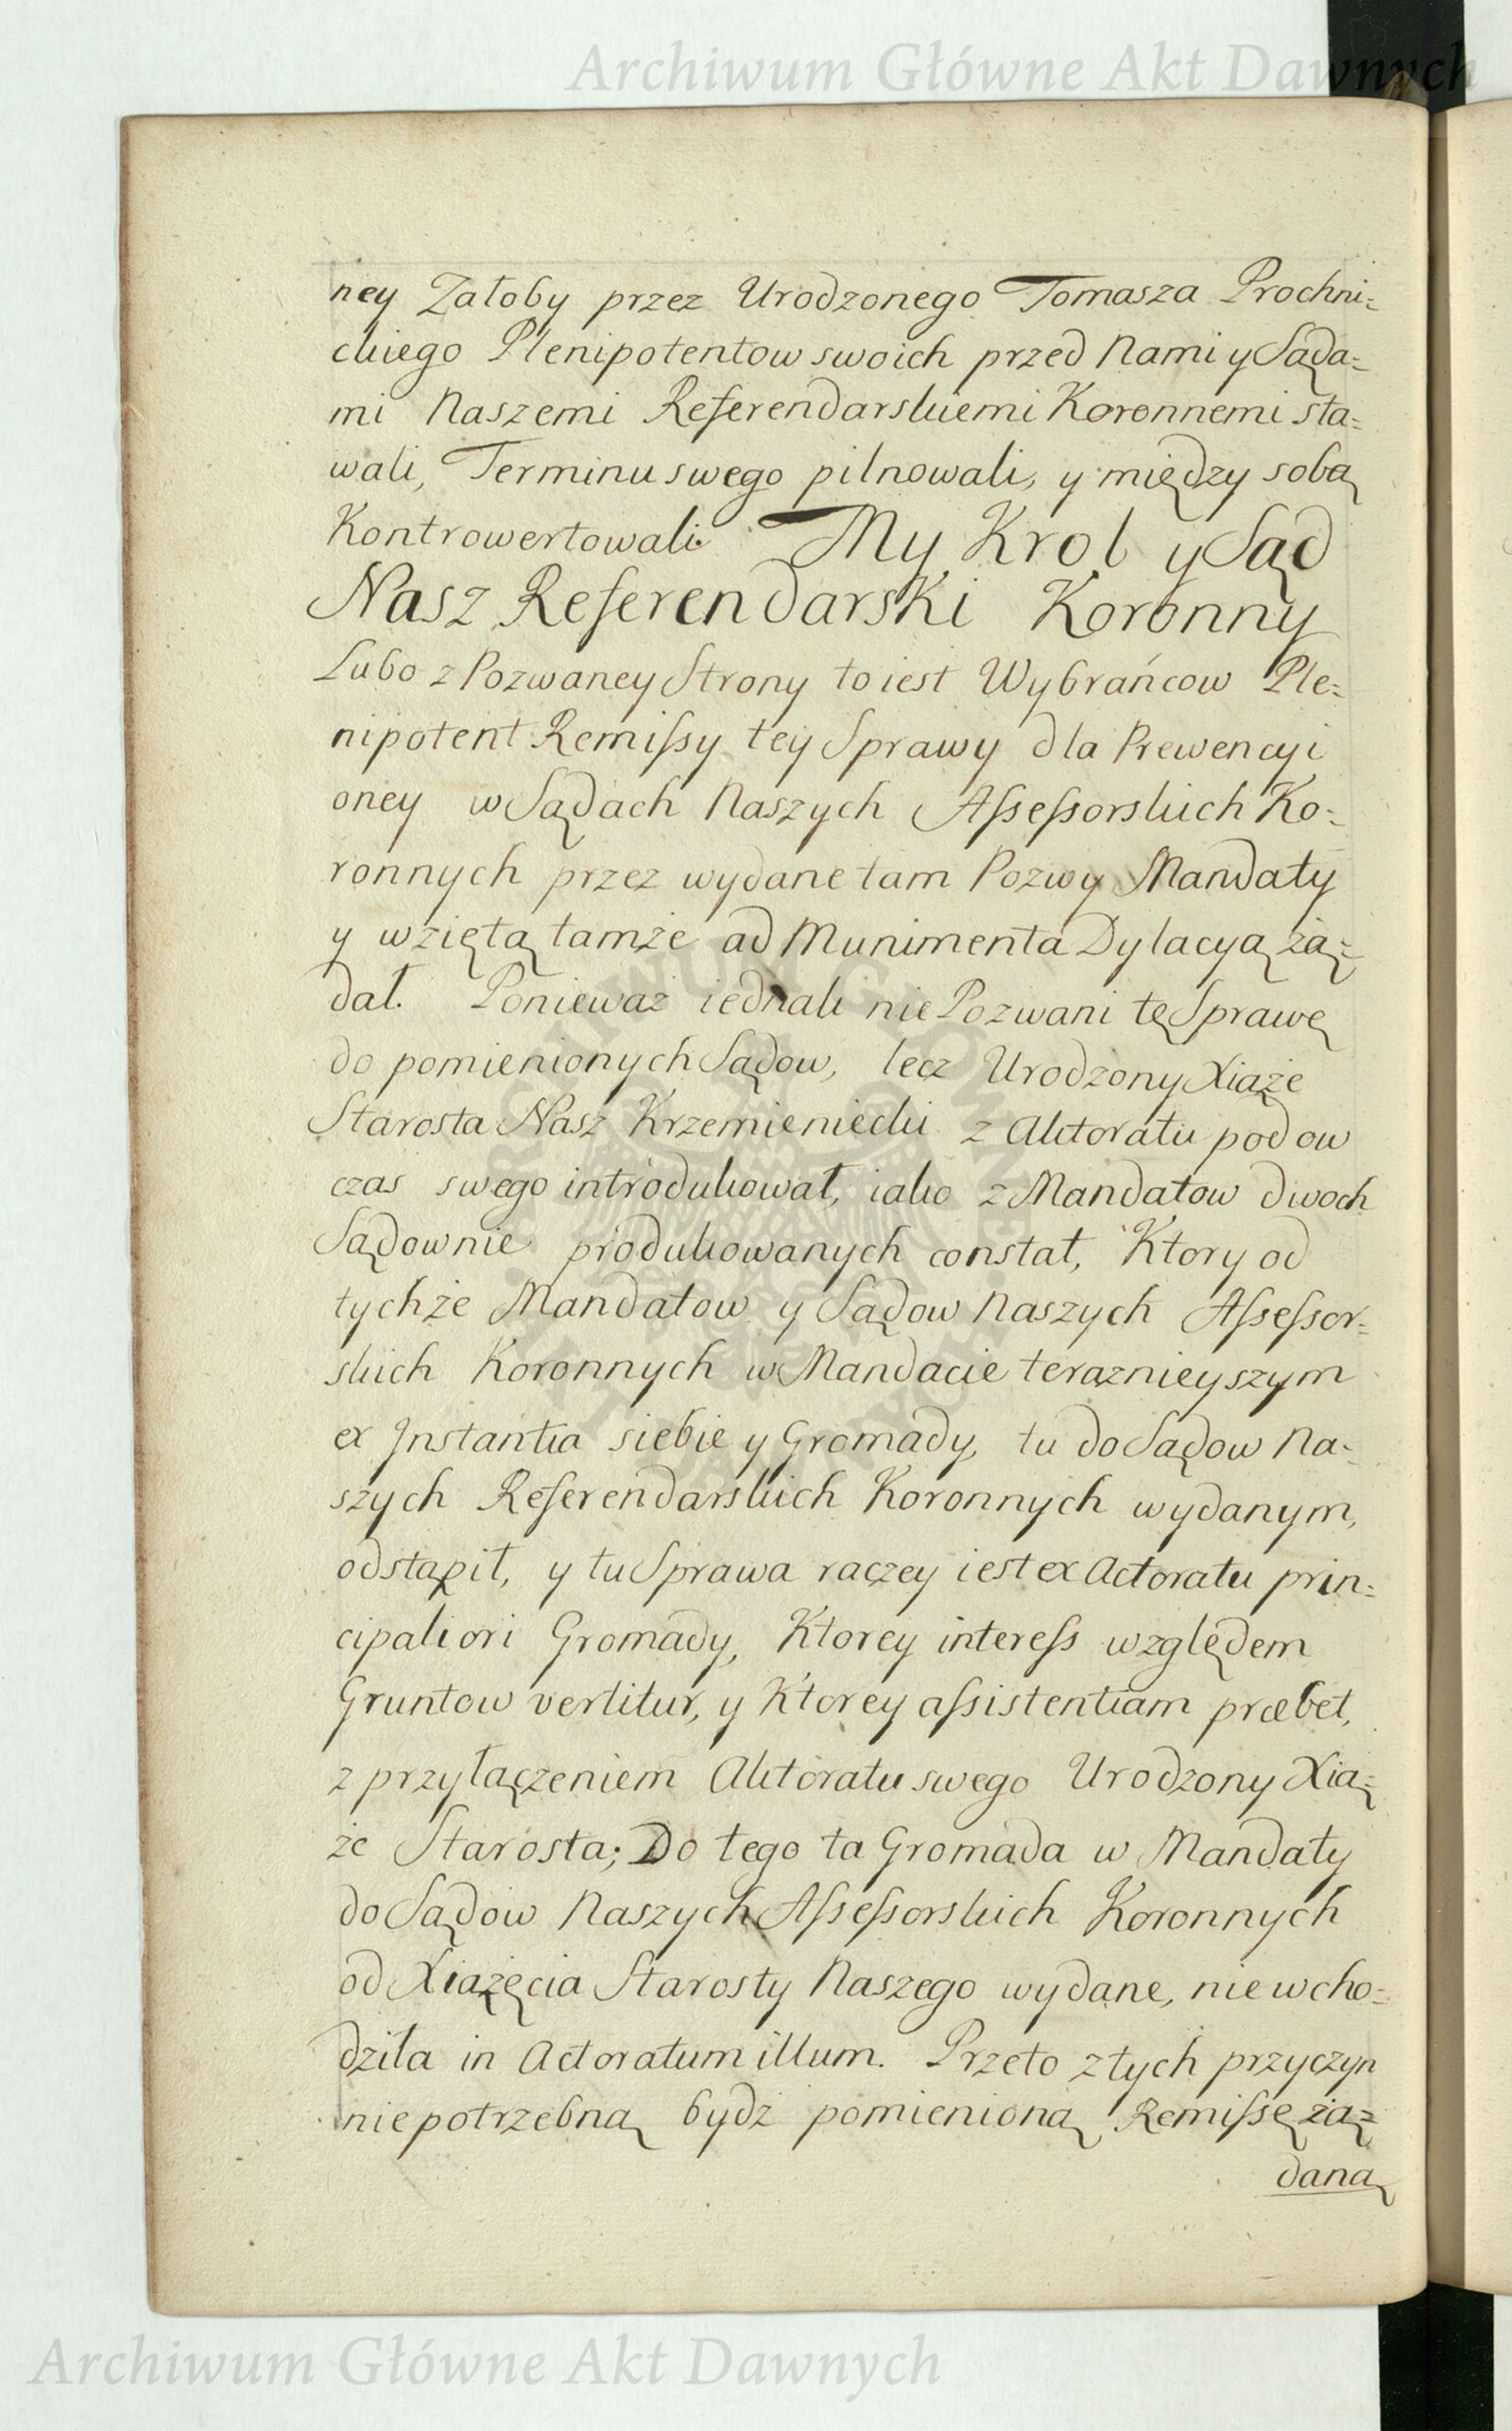 Archiwum Główne Akt Dawnych
ney Załoby przez Urodzonego Tomasza Prochni=
ckiego Plenipotentow swoich przed Nami y Sąda=
mi Naszemi Referendarskiemi Koronnemi sta=
wali, Terminu swego pilnowali, y między sobą
Kontrowertowali. My Krol y Sąd
Nasz Referendarski Koronny
Lubo z Pozwaney Strony to iest Wybrańcow Ple=
nipotent Remiſsy tey Sprawy dla Prewencyi
oney w Sądach Naszych Aſseſsorskich Ko=
ronnych przez wydane tam Pozwy Mandaty
y wziętą tamże ad Munimenta Dylacyą żą=
dał. Ponieważ iednak nie Pozwani tę Sprawę
do pomienionych Sądow, lecz Urodzony Xiąże
Starosta Nasz Krzemieniecki z Aktoratu pod ow
czas swego introdukował, iako z Mandatow dwoch
Sądownie produkowanych constat, Ktory od
tychże Mandatow y Sądow Naszych Aſseſsor=
skich Koronnych w Mandacie teraznieyszym
ex Jnstantia siebie y Gromady, tu do Sądow Na=
szych Referendarskich Koronnych wydanym,
odstąpił, y tu Sprawa raczey iest ex Actoratu prin=
cipaliori Gromady, Ktorey intereſs względem
Gruntow vertitur, y Ktorey aſsistentiam præbet,
z przyłączeniem Aktoratu swego Urodzony Xią=
że Starosta; Do tego ta Gromada w Mandaty
do Sądow Naszych Aſseſsorskich Koronnych
od Xiążęcia Starosty Naszego wydane, nie wcho=
dziła in Actoratum illum. Przeto z tych przyczyn
nie potrzebną bydź pomienioną Remiſsę żą=
daną
Archiwum Główne Akt Dawnych